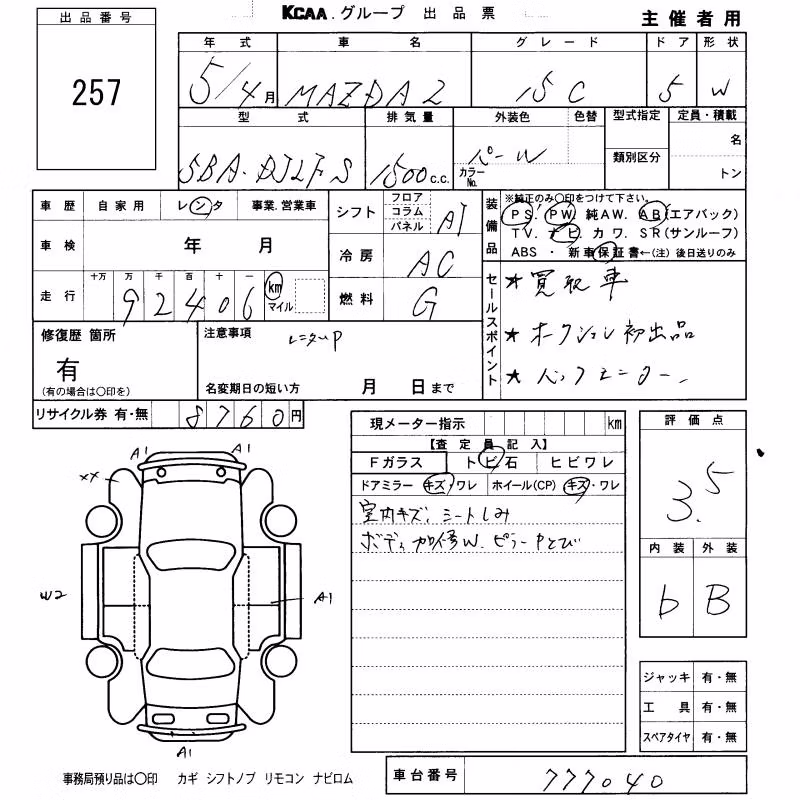 KCAA.グループ 出品票
主催者用
出品番号
257
年式 車名 グレード ドア 形状
5/4月 MAZDA2 15C 5 W
型式 排気量 外装色 色替 型式指定 定員・積載
名
類別区分
トン
1500c.c. パールW カラーNo.
車歴 自家用 レンタ 事業.営業車
シフト フロア コラム パネル AT
装備品
※純正のみ○印をつけて下さい。
PS. PW. 純AW. AB(エアバック)
TV. ナビ. カワ. SR(サンルーフ)
ABS ・ 新車保証書←(注)後日送りのみ
車検 年 月
冷房 AC
走行 十万 万 千 百 十 一
92406 km マイル
燃料 G
セールスポイント
★買取車
★オークション初出品
修復歴 箇所
有
(有の場合は○印を)
注意事項
レンタUP
名変期日の短い方 月 日まで
リサイクル券 有・無 8760円
現メーター指示 km
【査定員記入】
Fガラス トビ石 ヒビワレ
ドアミラー キズ・ワレ ホイール(CP) キズ・ワレ
室内キズ、シートしみ
評価点
3.5
内装 外装
b B
A1 A1
XX
W2 A1
A1
ジャッキ 有・無
工具 有・無
スペアタイヤ 有・無
事務局預り品は○印 カギ シフトノブ リモコン ナビロム
車台番号 777040